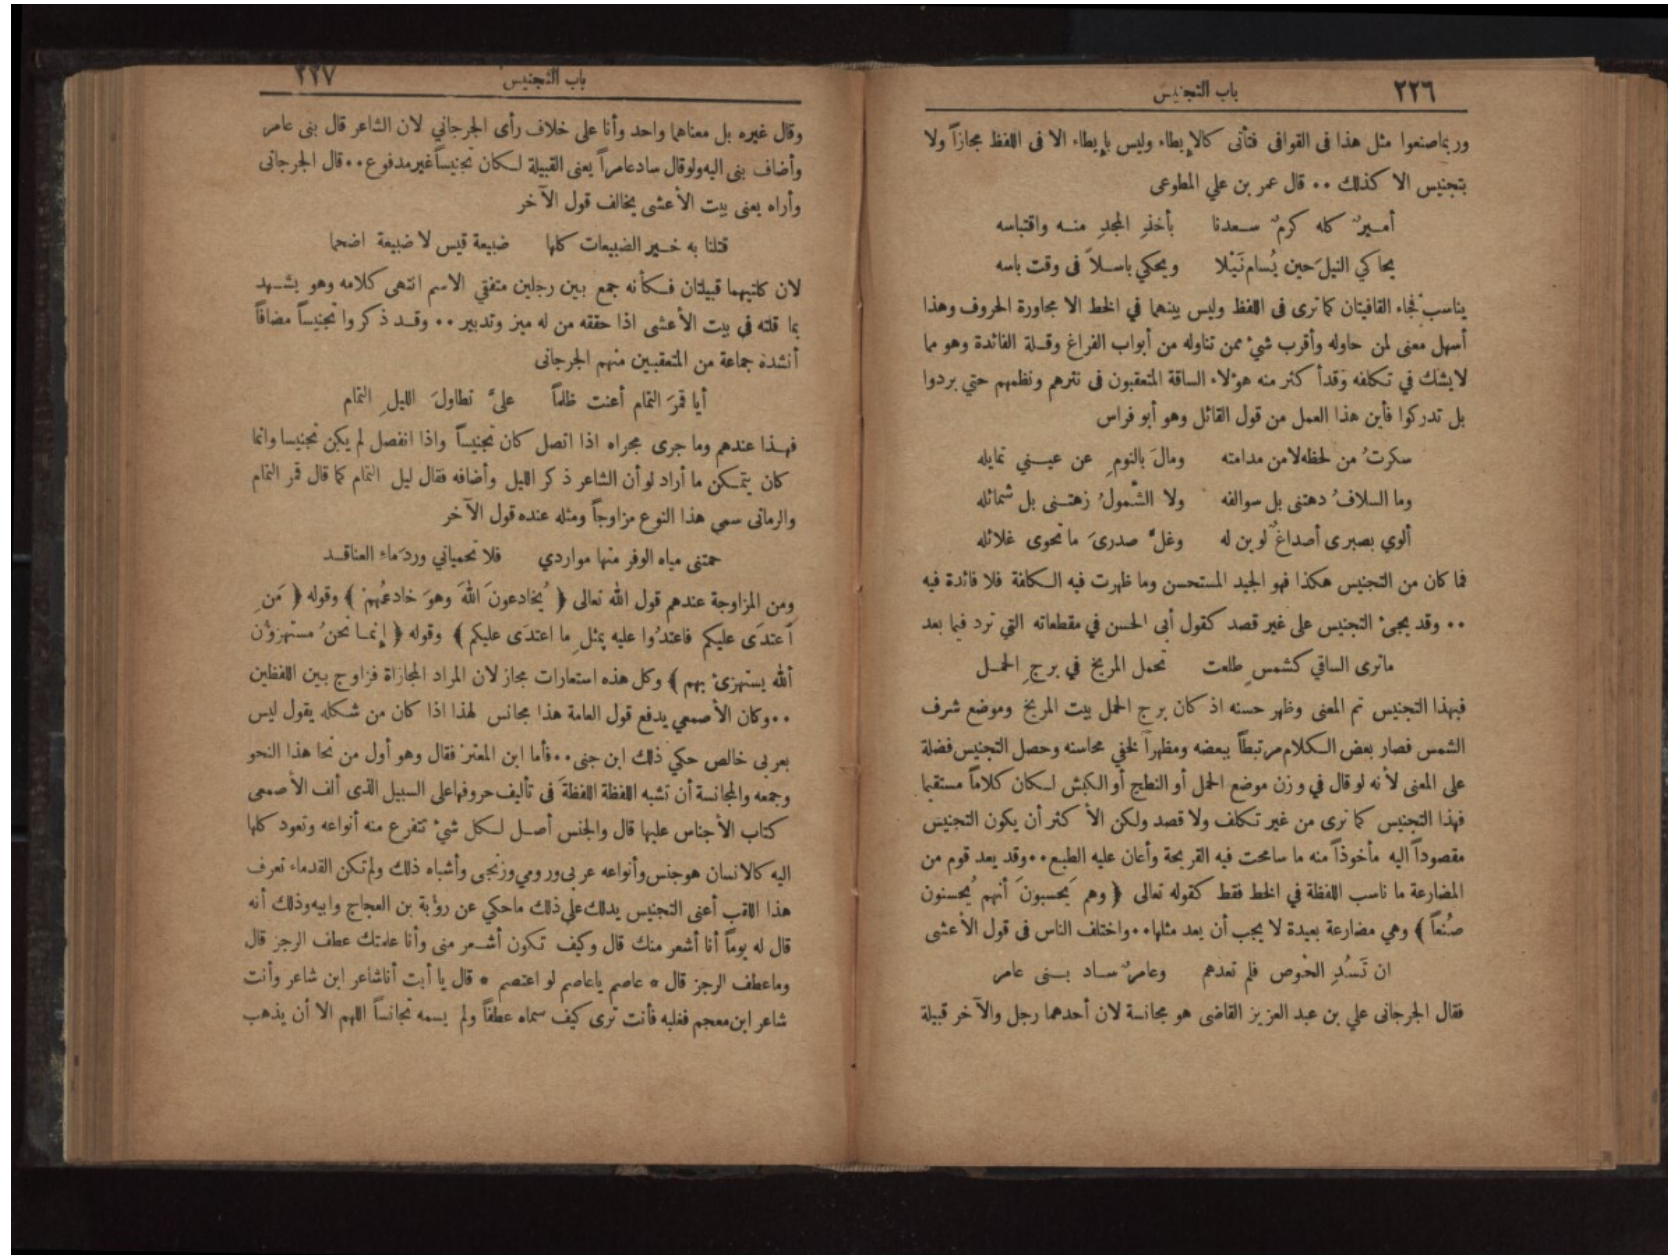 ٢٢٦
باب التجنيس
وربماصنعوا مثل هذا فى القوافى فتأتى كالإيطاء وليس بإيطاء الا فى اللفظ مجازاً ولا
بتجنيس الا كذلك ٠٠ قال عمر بن علي المطوعى
أمـيرٌ كله كرمٌ سـعدنا بأخذِ المجدِ منـه واقتباسه
يحاكي النيلَ حين يُسام نَيْلا ويحكي باسـلاً فى وقت باسه
يناسب فجاء القافيتان كما ترى فى اللفظ وليس بينهما في الخط الا مجاورة الحروف وهذا
أسهل معنى لمن حاوله وأقرب شيءٍ ممن تناوله من أبواب الفراغ وقـلة الفائدة وهو مما
لايشك في تكلفه وقدأ كثر منه هؤلاء الساقة المتعقبون فى نثرهم ونظمهم حتي بردوا
بل تدركوا فأين هذا العمل من قول القائل وهو أبو فراس
سكرتُ من لحظه لامن مدامته ومالَ بالنومِ عن عيـني تمايله
وما السلافُ دهتنى بل سوالفه ولا الشَّمولُ زهتـنى بل شمائله
ألوي بصبرى أصداغٌ لوين له وغلَّ صدرىَ ما تحوى غلائله
فما كان من التجنيس هكذا فهو الجيد المستحسن وما ظهرت فيه الـكلفة فلا فائدة فيه
٠٠ وقد يجئ التجنيس على غير قصد كقول أبى الحسن في مقطعاته التي ترد فيما بعد
ماترى الساقي كشمسٍ طلعت تحمل المريخ في برجِ الحمـل
فبهذا التجنيس تم المعنى وظهر حسنه اذ كان برج الحمل بيت المريخ وموضع شرف
الشمس فصار بعض الـكلام مرتبطاً ببعضه ومظهراً لخفي محاسنه وحصل التجنيس فضلة
على المعنى لأنه لو قال في وزن موضع الحمل أو النطح أو الكبش لـكان كلاماً مستقيما
فهذا التجنيس كما ترى من غير تكلف ولا قصد ولكن الأ كثر أن يكون التجنيس
مقصوداً اليه مأخوذاً منه ما سامحت فيه القريحة وأعان عليه الطبع٠٠وقد يعد قوم من
المضارعة ما ناسب اللفظة في الخط فقط كقوله تعالى ﴿ وهم يَحسبونَ أنهم يُحسنون
صُنعاً ﴾ وهي مضارعة بعيدة لا يجب أن يعد مثلها٠٠واختلف الناس فى قول الأعشى
ان تَسُدِ الحُوص فلم تعدهم وعامرٌ سـاد بـنى عامر
فقال الجرجانى علي بن عبد العزيز القاضى هو مجانسة لان أحدهما رجل والآخر قبيلة
باب التجنيس
٢٢٧
وقال غيره بل معناهما واحد وأنا على خلاف رأى الجرجاني لان الشاعر قال بنى عامر
وأضاف بنى اليه ولوقال سادعامراً يعنى القبيلة لـكان تجنيساً غير مدفوع٠٠قال الجرجانى
وأراه يعنى بيت الأعشى يخالف قول الآخر
قتلنا به خـير الضبيعات كلها ضبيعة قيس لا ضبيعة اضجما
لان كلتيهما قبيلتان فـكأنه جمع بين رجلين متفقي الاسم انتهى كلامه وهو يشـهد
بما قلته في بيت الأعشى اذا حققه من له ميز وتدبير ٠٠ وقـد ذكروا تجنيساً مضافاً
أنشده جماعة من المتعقبين منهم الجرجانى
أيا قمَرَ التمام أعنت ظلماً علىَّ تطاولَ الليلِ التمام
فهـذا عندهم وما جرى مجراه اذا اتصل كان تجنيساً واذا انفصل لم يكن تجنيسا وانما
كان يتمـكن ما أراد لو أن الشاعر ذكر الليل وأضافه فقال ليل التمام كما قال قمر التمام
والرمانى سمى هذا النوع مزاوجاً ومثله عنده قول الآخر
حمتنى مياه الوفر منها مواردي فلا تحمياني وردَ ماء العناقـد
ومن المزاوجة عندهم قول الله تعالى ﴿ يُخادعونَ اللهَ وهوَ خادعُهُم ﴾ وقوله ﴿ مَنِ
آعتدَى عليكم فاعتدُوا عليه بمثلِ ما اعتدَى عليكم ﴾ وقوله ﴿ إنمـا نحنُ مستهزؤن
ألله يستهزئ بهم ﴾ وكل هذه استعارات مجاز لان المراد المجازاة فزاوج بين اللفظين
٠٠وكان الأصمعي يدفع قول العامة هذا مجانس لهذا اذا كان من شكله يقول ليس
بعربى خالص حكي ذلك ابن جنى٠٠فأما ابن المعتز فقال وهو أول من نحا هذا النحو
وجمعه والمجانسة أن تشبه اللفظة اللفظةَ فى تأليف حروفهاعلى السبيل الذى ألف الأصمعى
كتاب الأجناس عليها قال والجنس أصـل لـكل شيءٍ تتفرع منه أنواعه وتعود كلها
اليه كالانسان هوجنس وأنواعه عربى ورومي وزنجى وأشباه ذلك ولم تكن القدماء تعرف
هذا اللقب أعنى التجنيس يدلك على ذلك ماحكي عن رؤبة بن العجاج وابيه وذلك أنه
قال له يوماً أنا أشعر منك قال وكيف تـكون أشـعر منى وأنا علمتك عطف الرجز قال
وماعطف الرجز قال * عاصم ياعاصم لو اعتصم * قال يا أبت أناشاعر ابن شاعر وأنت
شاعر ابن معجم فغلبه فأنت ترى كيف سماه عطفاً ولم يسمه تجانساً اللهم الا أن يذهب